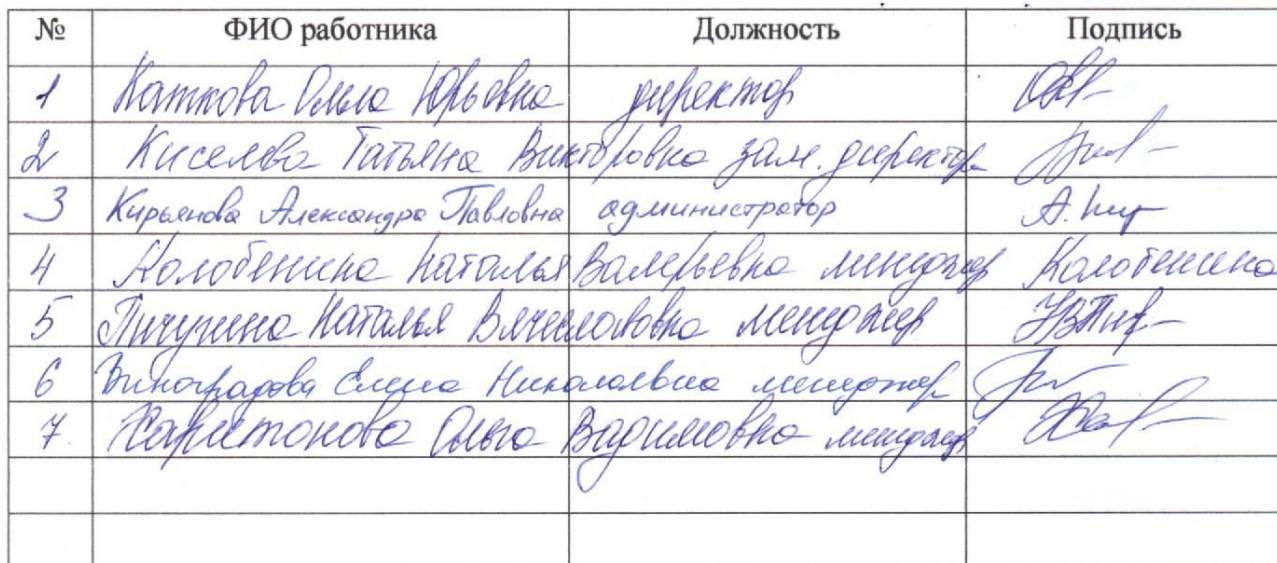 № ФИО работника Должность Подпись
1 Каткова Ольга Юрьевна директор
2 Киселева Татьяна Викторовна зам. директора
3 Кирьянова Александра Павловна администратор А. Кир
4 Колобенина Наталья Валерьевна менеджер Колобенина
5 Пичугина Наталья Вячеславовна менеджер
6 Виноградова Елена Николаевна менеджер
7. Харитонова Ольга Вадимовна менеджер